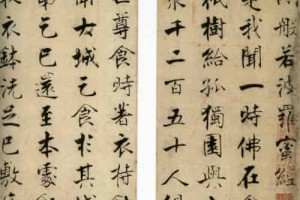 般若波羅蜜經
是我聞一時佛在舍
祇樹給孤獨園與
眾千二百五十人俱
世尊食時著衣持
大城乞食於其城
乞已還至本處
衣鉢洗足已敷